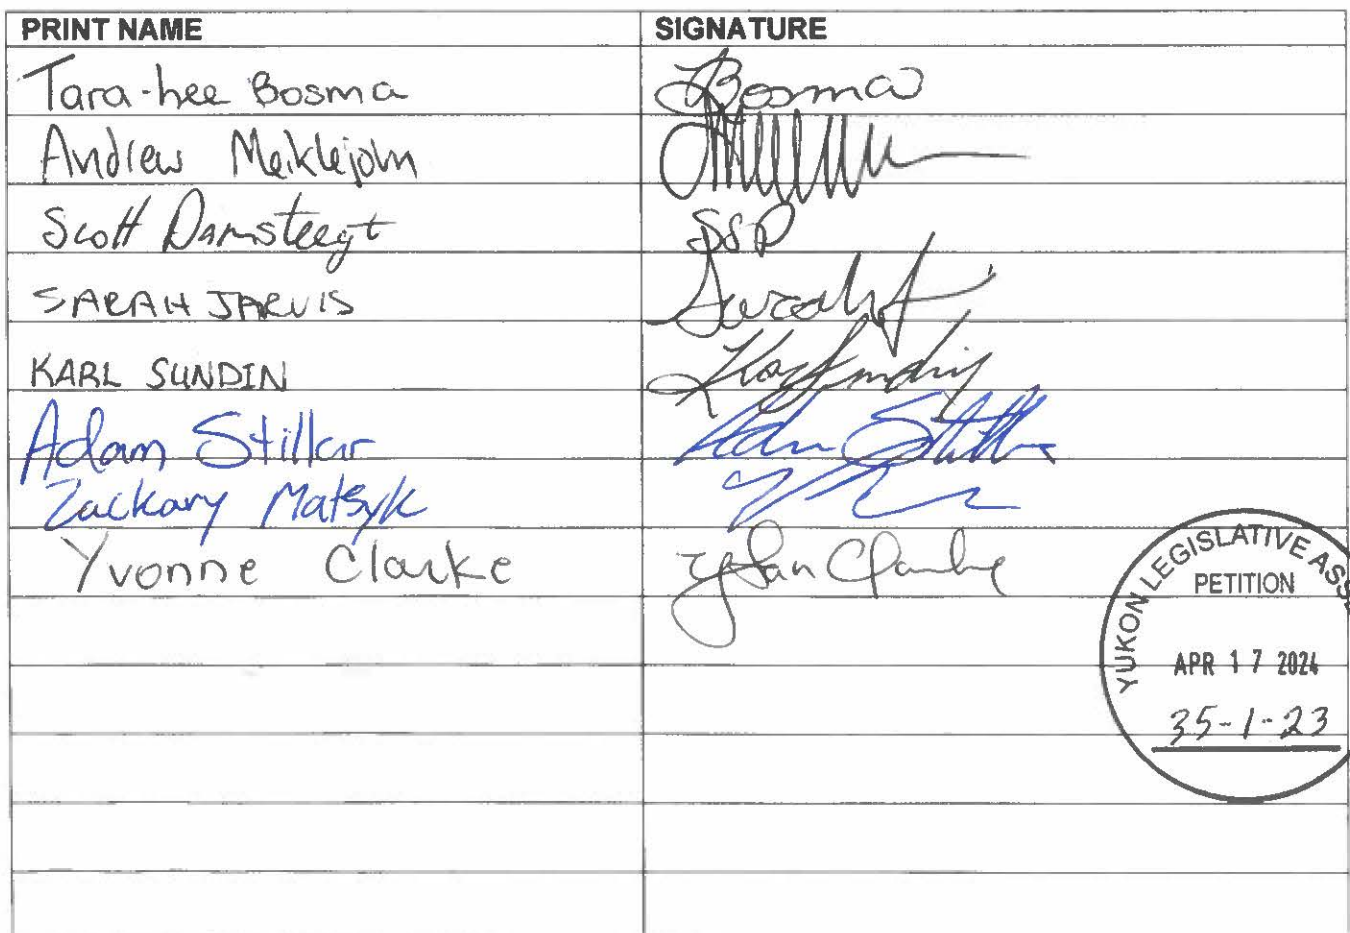 PRINT NAME SIGNATURE
Tara-hee Bosma Bosma
Andrew Meiklejohn
Scott Damsteegt SSD
SARAH JARVIS Sarah J
KARL SUNDIN Karl Sundin
Adam Stillar Adam Stillar
Zackary Matsyk
Yvonne Clarke Clarke
YUKON LEGISLATIVE ASSE
PETITION
APR 17 2024
35-1-23